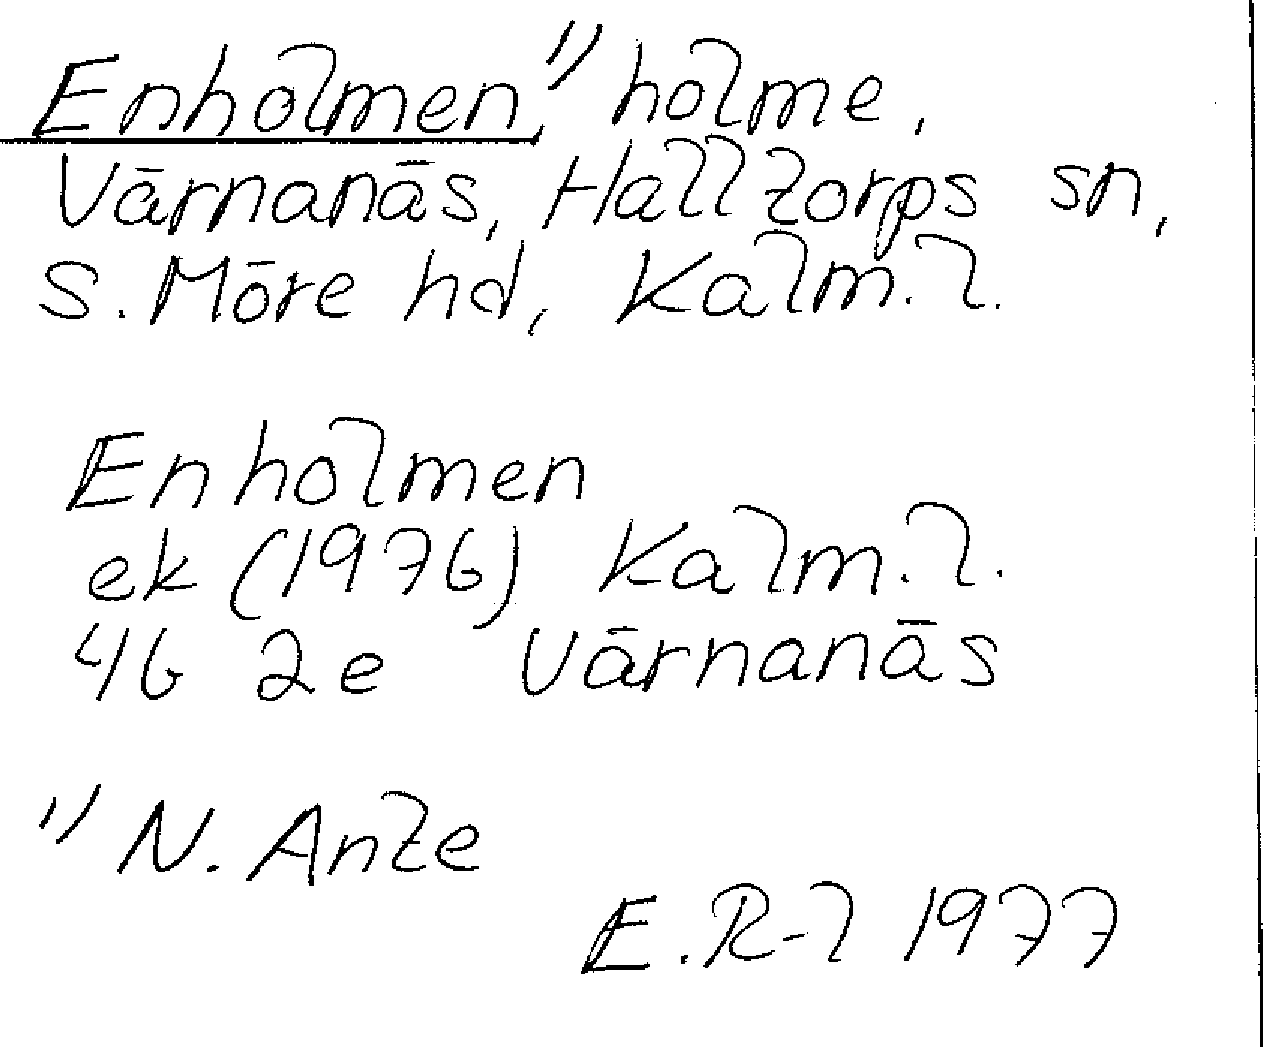 Enholmen,¹⁾ holme,
Värnanäs, Halltorps sn,
S. Möre hd, Kalm. l.
Enholmen
ek (1976) Kalm. l.
4G 2e Värnanäs
¹⁾ N. Ante
E.R-l 1977